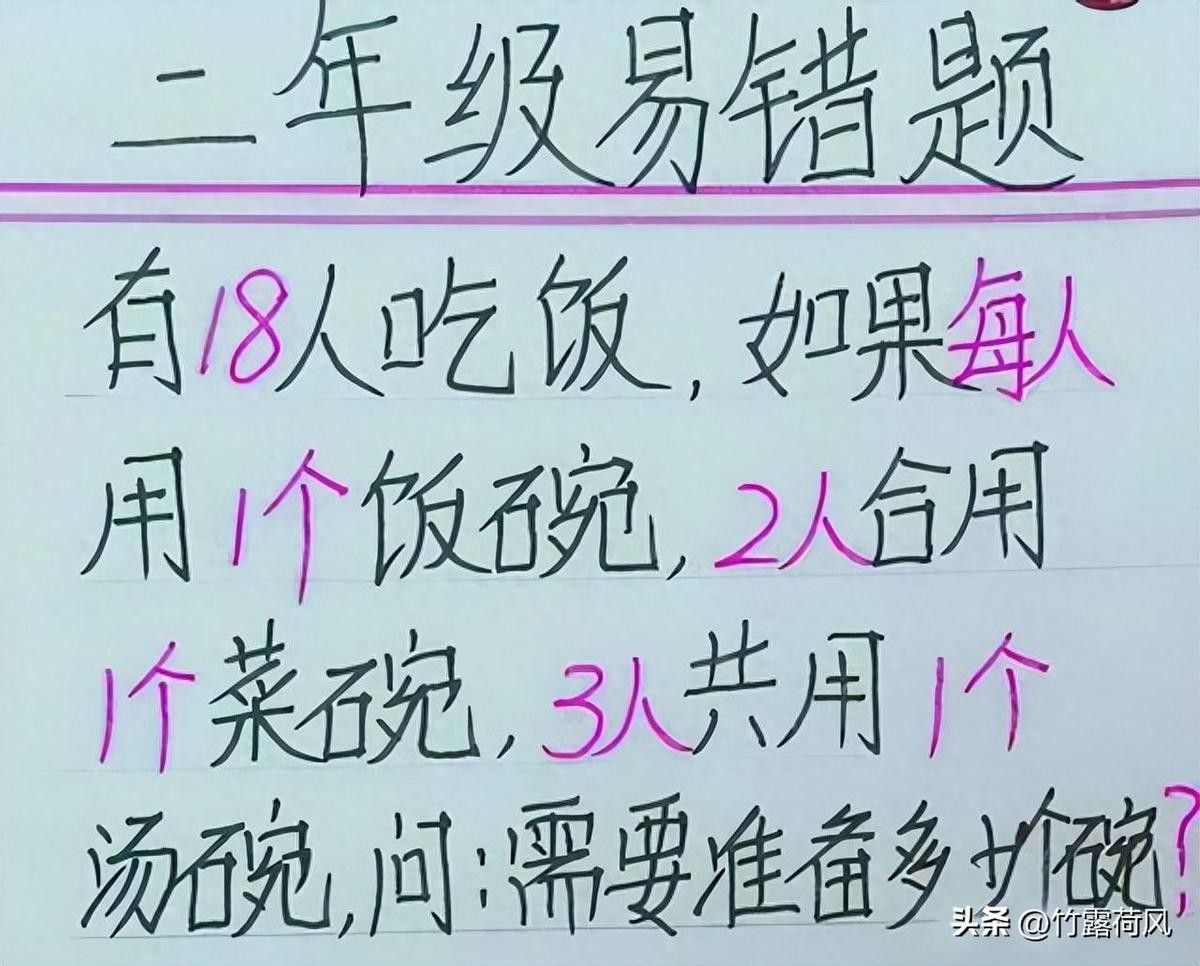 二年级易错题
有18人吃饭,如果每人
用1个饭碗,2人合用
1个菜碗,3人共用1个
汤碗,问:需要准备多少个碗?
头条 @竹露荷风